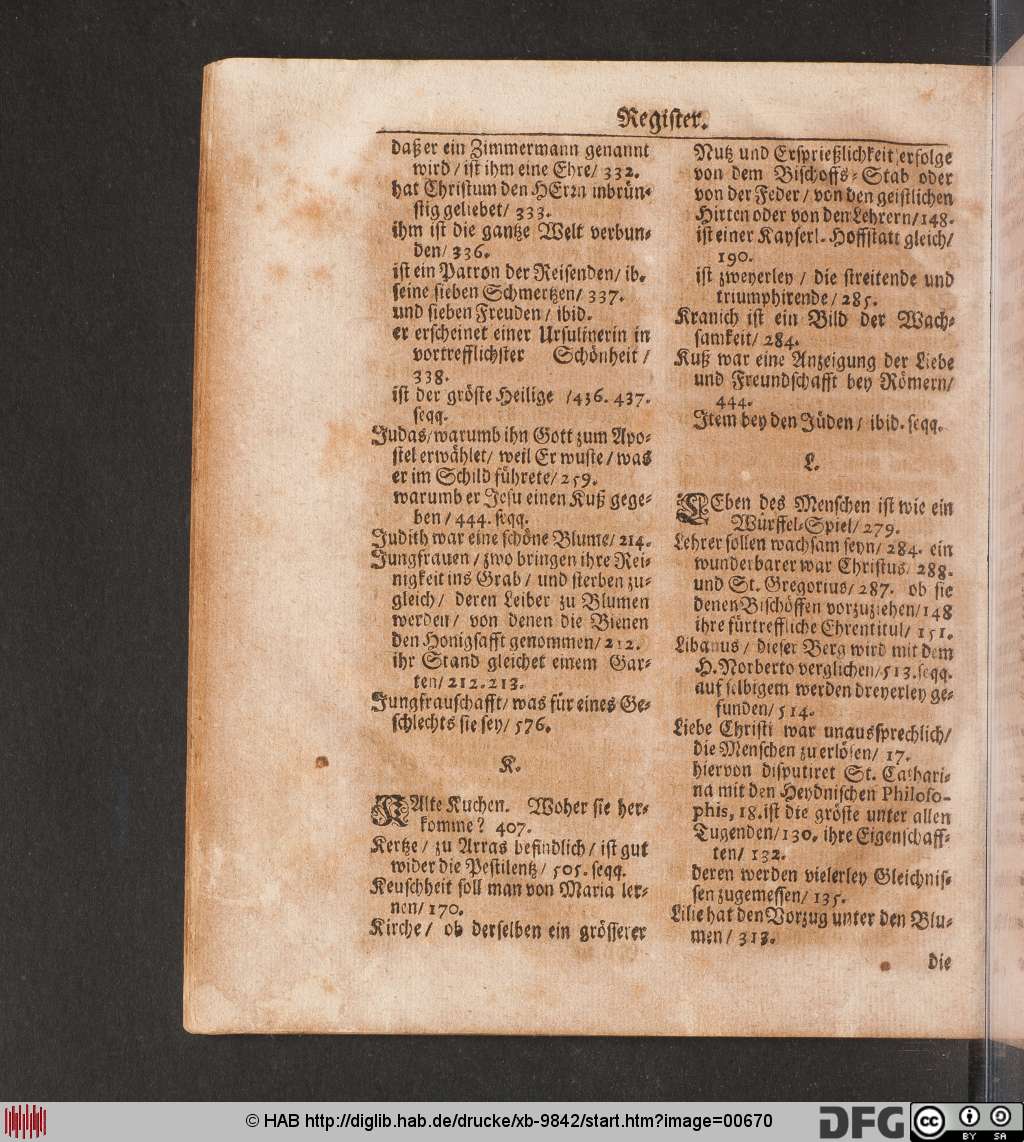 Register.
daß er ein Zimmermann genannt
wird / ist ihm eine Ehre / 332.
hat Christum den HErrn inbrün-
stig geliebet / 333.
ihm ist die gantze Welt verbun-
den / 336.
ist ein Patron der Reisenden / ib.
seine sieben Schmertzen / 337.
und sieben Freuden / ibid.
er erscheinet einer Ursulinerin in
vortrefflichster Schönheit /
338.
ist der gröste Heilige / 436. 437.
seqq.
Judas / warumb ihn Gott zum Apo-
stel erwählet / weil Er wuste / was
er im Schild führete / 259.
warumb er Jesu einen Kuß gege-
ben / 444. seqq.
Judith war eine schöne Blume / 214.
Jungfrauen / zwo bringen ihre Rei-
nigkeit ins Grab / und sterben zu-
gleich / deren Leiber zu Blumen
werden / von denen die Bienen
den Honigsafft genommen / 212.
ihr Stand gleichet einem Gar-
ten / 212. 213.
Jungfrauschafft / was für eines Ge-
schlechts sie sey / 576.
K.
KAlte Kuchen. Woher sie her-
komme? 407.
Kertze / zu Arras befindlich / ist gut
wider die Pestilentz / 505. seqq.
Keuschheit soll man von Maria ler-
nen / 170.
Kirche / ob derselben ein grösserer
Nutz und Ersprießlichkeit erfolge
von dem Bischoffs-Stab oder
von der Feder / von den geistlichen
Hirten oder von den Lehrern / 148.
ist einer Kayserl. Hoffstatt gleich /
190.
ist zweyerley / die streitende und
triumphirende / 285.
Kranich ist ein Bild der Wach-
samkeit / 284.
Kuß war eine Anzeigung der Liebe
und Freundschafft bey Römern /
444.
Item bey den Jüden / ibid. seqq.
L.
LEben des Menschen ist wie ein
Würffel-Spiel / 279.
Lehrer sollen wachsam seyn / 284. ein
wunderbarer war Christus / 288.
und St. Gregorius / 287. ob sie
denen Bischöffen vorzuziehen / 148
ihre fürtreffliche Ehrentitul / 151.
Libanus / dieser Berg wird mit dem
H. Norberto verglichen / 513. seqq.
auf selbigem werden dreyerley ge-
funden / 514.
Liebe Christi war unaussprechlich /
die Menschen zu erlösen / 17.
hiervon disputiret St. Cathari-
na mit den Heydnischen Philoso-
phis, 18. ist die gröste unter allen
Tugenden / 130. ihre Eigenschaff-
ten / 132.
deren werden vielerley Gleichnis-
sen zugemessen / 135.
Lilie hat den Vorzug unter den Blu-
men / 313.
die
© HAB http://diglib.hab.de/drucke/xb-9842/start.htm?image=00670
DFG
cc
BY SA